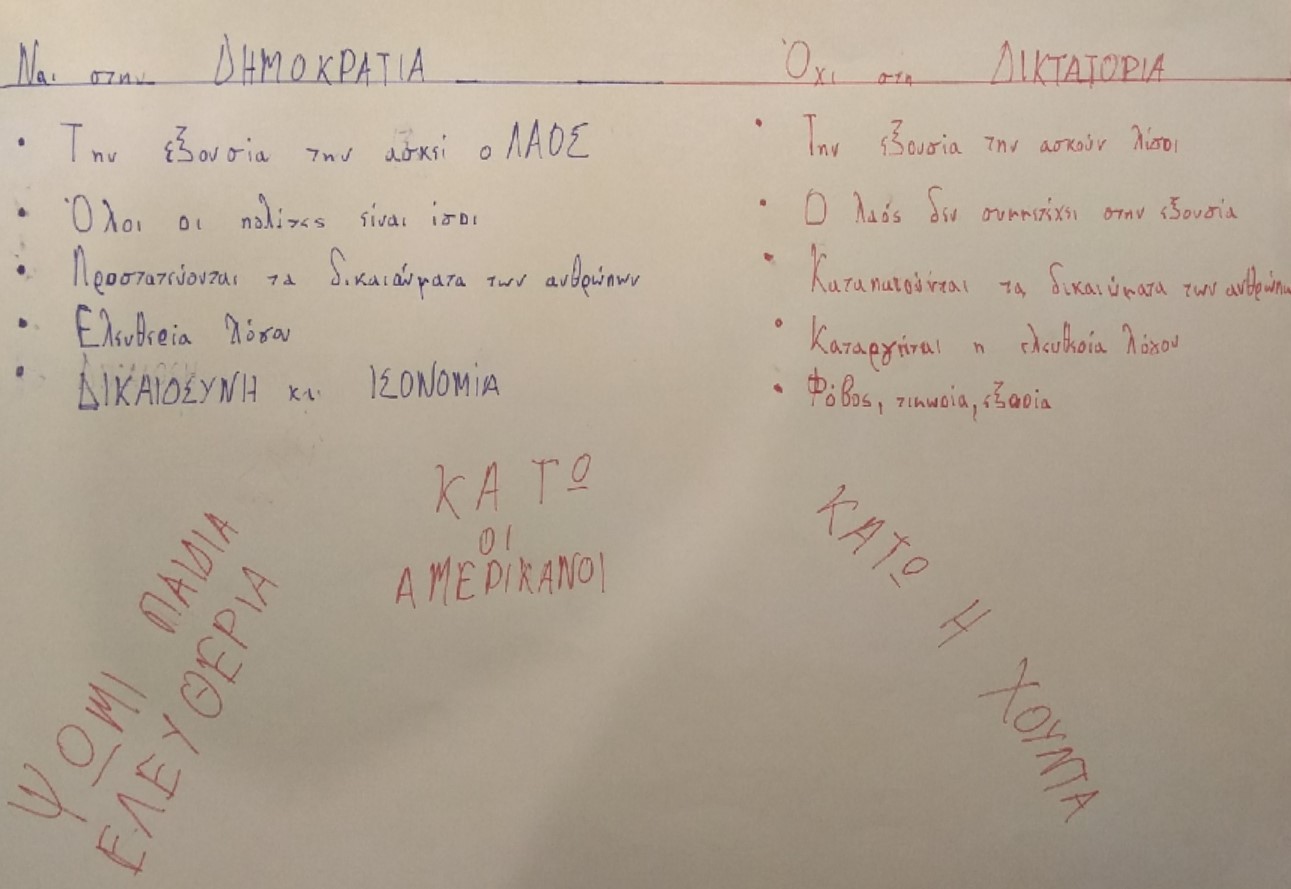 Ναι στην ΔΗΜΟΚΡΑΤΙΑ
• Την εξουσία την ασκεί ο ΛΑΟΣ
• Όλοι οι πολίτες είναι ίσοι
• Προστατεύονται τα δικαιώματα των ανθρώπων
• Ελευθερία λόγου
• ΔΙΚΑΙΟΣΥΝΗ και ΙΣΟΝΟΜΙΑ
Όχι στη ΔΙΚΤΑΤΟΡΙΑ
• Την εξουσία την ασκούν λίγοι
• Ο λαός δεν συμμετέχει στην εξουσία
• Καταπατούνται τα δικαιώματα των ανθρώπων
• Καταργείται η ελευθερία λόγου
• Φόβος, τιμωρία, εξορία
ΚΑΤΩ
ΟΙ
ΑΜΕΡΙΚΑΝΟΙ
ΨΩΜΙ ΠΑΙΔΙΑ
ΕΛΕΥΘΕΡΙΑ
ΚΑΤΩ Η ΧΟΥΝΤΑ